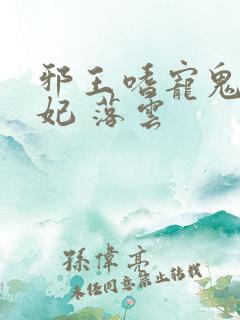 邪王嗜寵鬼
妃 落雲
孫偉亮
未经同意禁止转载